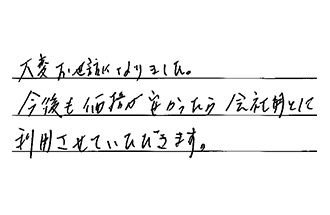 大変お世話になりました。
今後も価格が安かったら会社用として
利用させていただきます。